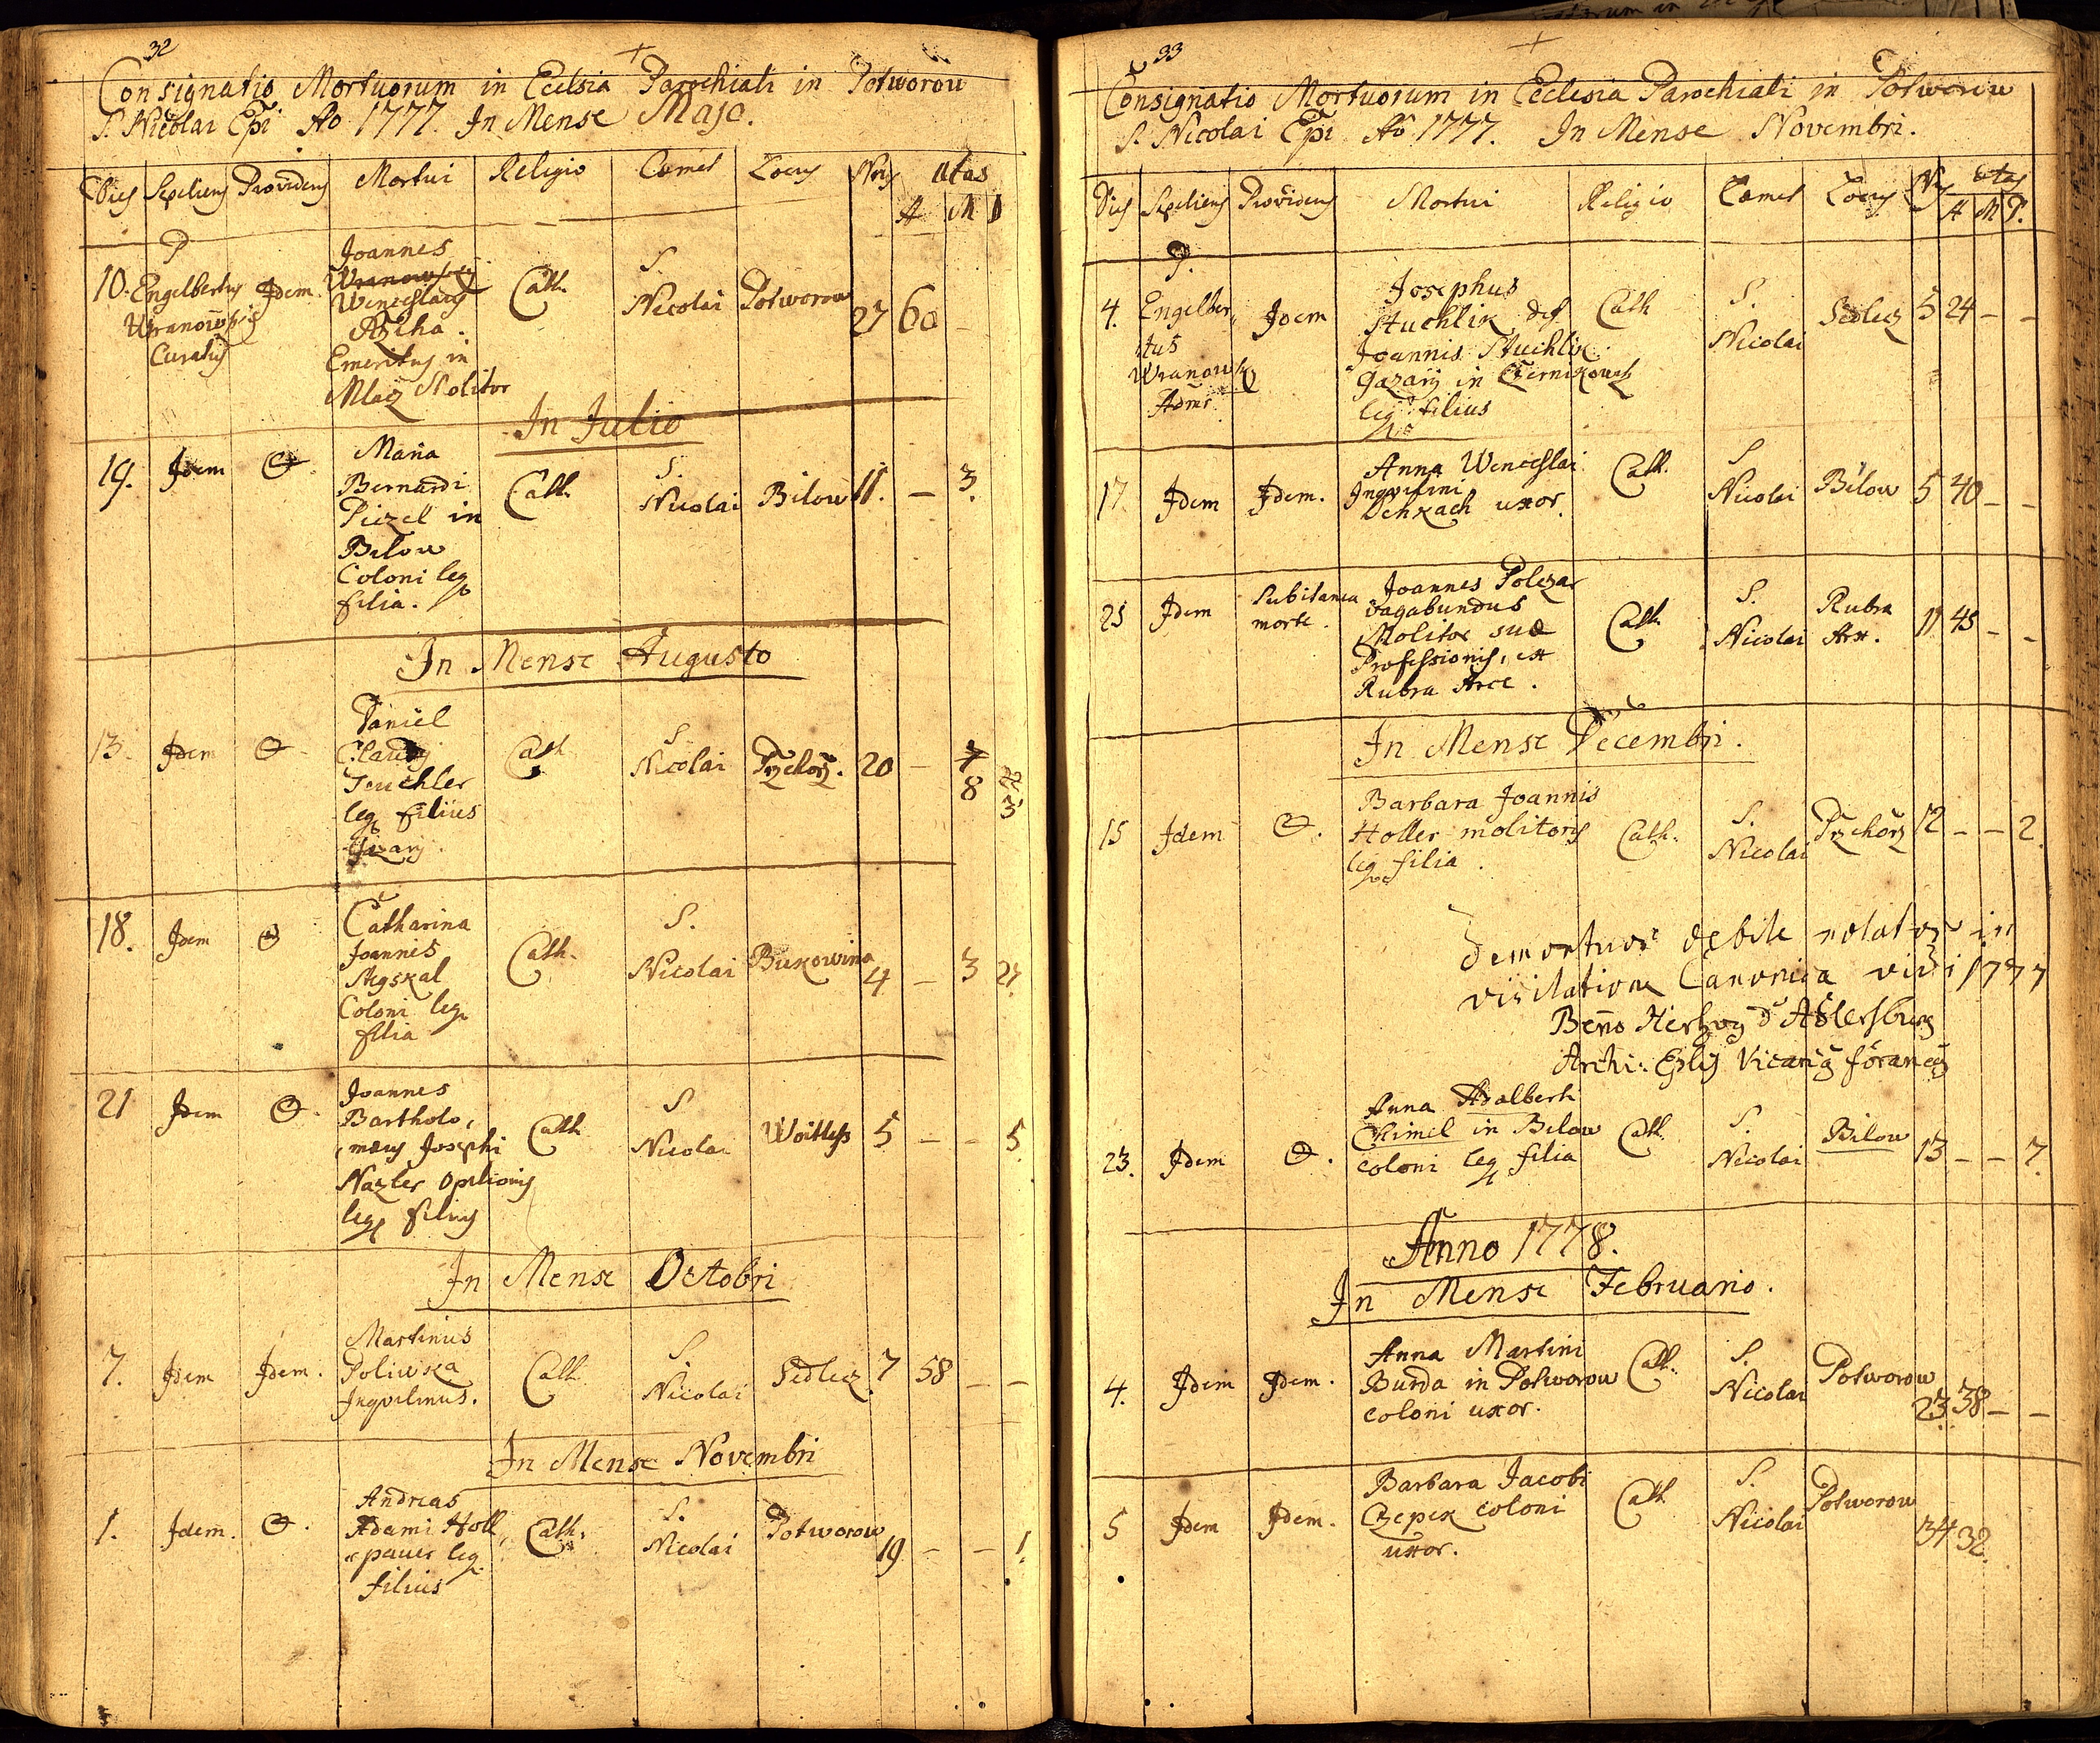 32
Consignatio Mortuorum in Ecclsia Parochiali in Potworow
S. Nicolai Epi Ao 1777. In Mense Majo.
Dies Sepeliens Providens Mortui Religio Cœmet Locus Nrus Ætas
A M D
10. P Engelbertus Wranowsky Curatus
Idem.
Joannes
Wenceslaus
Emeritus in
Mlaz Molitor
Cath.
S.
Nicolai
Potworow
27 60 –
In Julio
19.
Idem
Maria
Bernardi
Piezel in
Bilow
Coloni leg
filia.
Cath.
S.
Nicolai
Bilow
11. – 3.
In Mense Augusto
13.
Idem
Daniel
Teuchler
leg filius
Gazarij
Cath
S.
Nicolai
Przehorz.
20 – 8 3
18.
Idem
Catharina
Joannis
Coloni leg
filia
Cath.
S.
Nicolai
Bukowina
4 – 3 21.
21
Idem
Joannes
Bartholo,
mæus Josephi
Nazler Opilionis
leg filius
Cath
S.
Nicolai
Woitless
5 – – 5.
In Mense Octobri
7.
Idem
Idem.
Martinus
Poliwka
Inquilinus.
Cath
S.
Nicolai
Sedlecz
7 58 – –
In Mense Novembri
1.
Idem.
Andreas
Adami Holl
pauer leg
filius
Cath.
S.
Nicolai
Potworow
19 – – 1.
33
Consignatio Mortuorum in Ecclesia Parochiali in Potworow
S. Nicolai Epi Ao 1777. In Mense Novembri.
Dies Sepeliens Providens Mortui Religio Cœmet Locus Nrus ætas
A M D.
4.
P.
Engelber,
tus
Wranowsky
Admr
Idem
Josephus
Stuchlik def
Joannis Stuchlik
Gazarij in Czernikowitz
leg filius
Cath
S.
Nicolai
Sedlecz
5 24 – –
17.
Idem
Idem.
Anna Wenceslai
Inquilini
Denkach uxor.
Cath.
S
Nicolai
Bilow
5 40 – –
25
Idem
Subitanea
morte.
Joannes Polczar
vagabundus
Molitor suæ
Professionis, ex
Rubra Arce.
Cath.
S.
Nicolai
Rubra
Arx.
11 45 – –
In Mense Decembri.
15
Idem
Barbara Joannis
Holler molitoris
leg filia.
Cath.
S.
Nicolai
Przehorz
12 – – 2.
Demortuos debite notatos in
visitatione Canonica vidi 1777
Benno Hertzog d'Adlersburg
Archi: Eplis Vicarius foraneus
23.
Idem
Anna Adalberti
Chimel in Bilow
coloni leg filia
Cath.
S.
Nicolai
Bilow
13 – – 7.
Anno 1778.
In Mense Februario.
4.
Idem
Idem.
Anna Martini
Burda in Potworow
coloni uxor.
Cath.
S.
Nicolai
Potworow
23 38 – –
5
Idem
Idem.
Barbara Jacobi
Czepek coloni
uxor.
Cath
S.
Nicolai
Potworow
34 32.